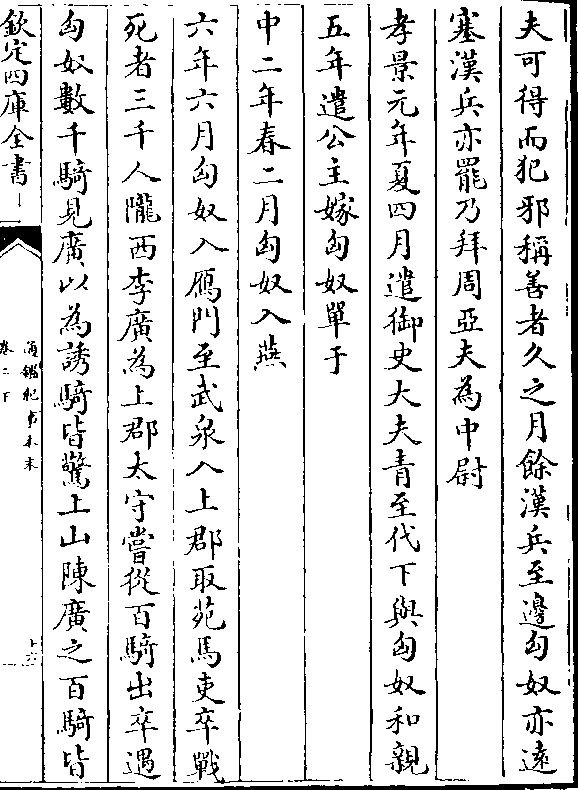 夫可得而犯邪稱善者久之月餘漢兵至邊匈奴亦逺
塞漢兵亦罷乃拜周亞夫為中尉
孝景元年夏四月遣御史大夫青至代下與匈奴和親
五年遣公主嫁匈奴單于
中二年春二月匈奴入燕
六年六月匈奴入鴈門至武泉入上郡取苑馬吏卒戰
死者三千人隴西李廣為上郡太守嘗從百騎出卒遇
匈奴數千騎見廣以為誘騎皆驚上山陳廣之百騎皆
欽定四庫全書
通鑑紀事本末
卷二下